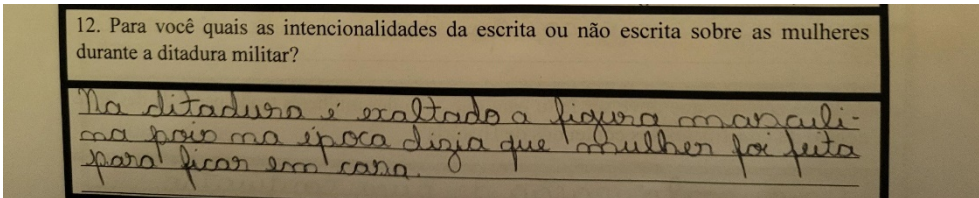 12. Para você quais as intencionalidades da escrita ou não escrita sobre as mulheres
durante a ditadura militar?
Na ditadura é exaltado a figura masculi-
na pois na época dizia que mulher foi feita
para ficar em casa.